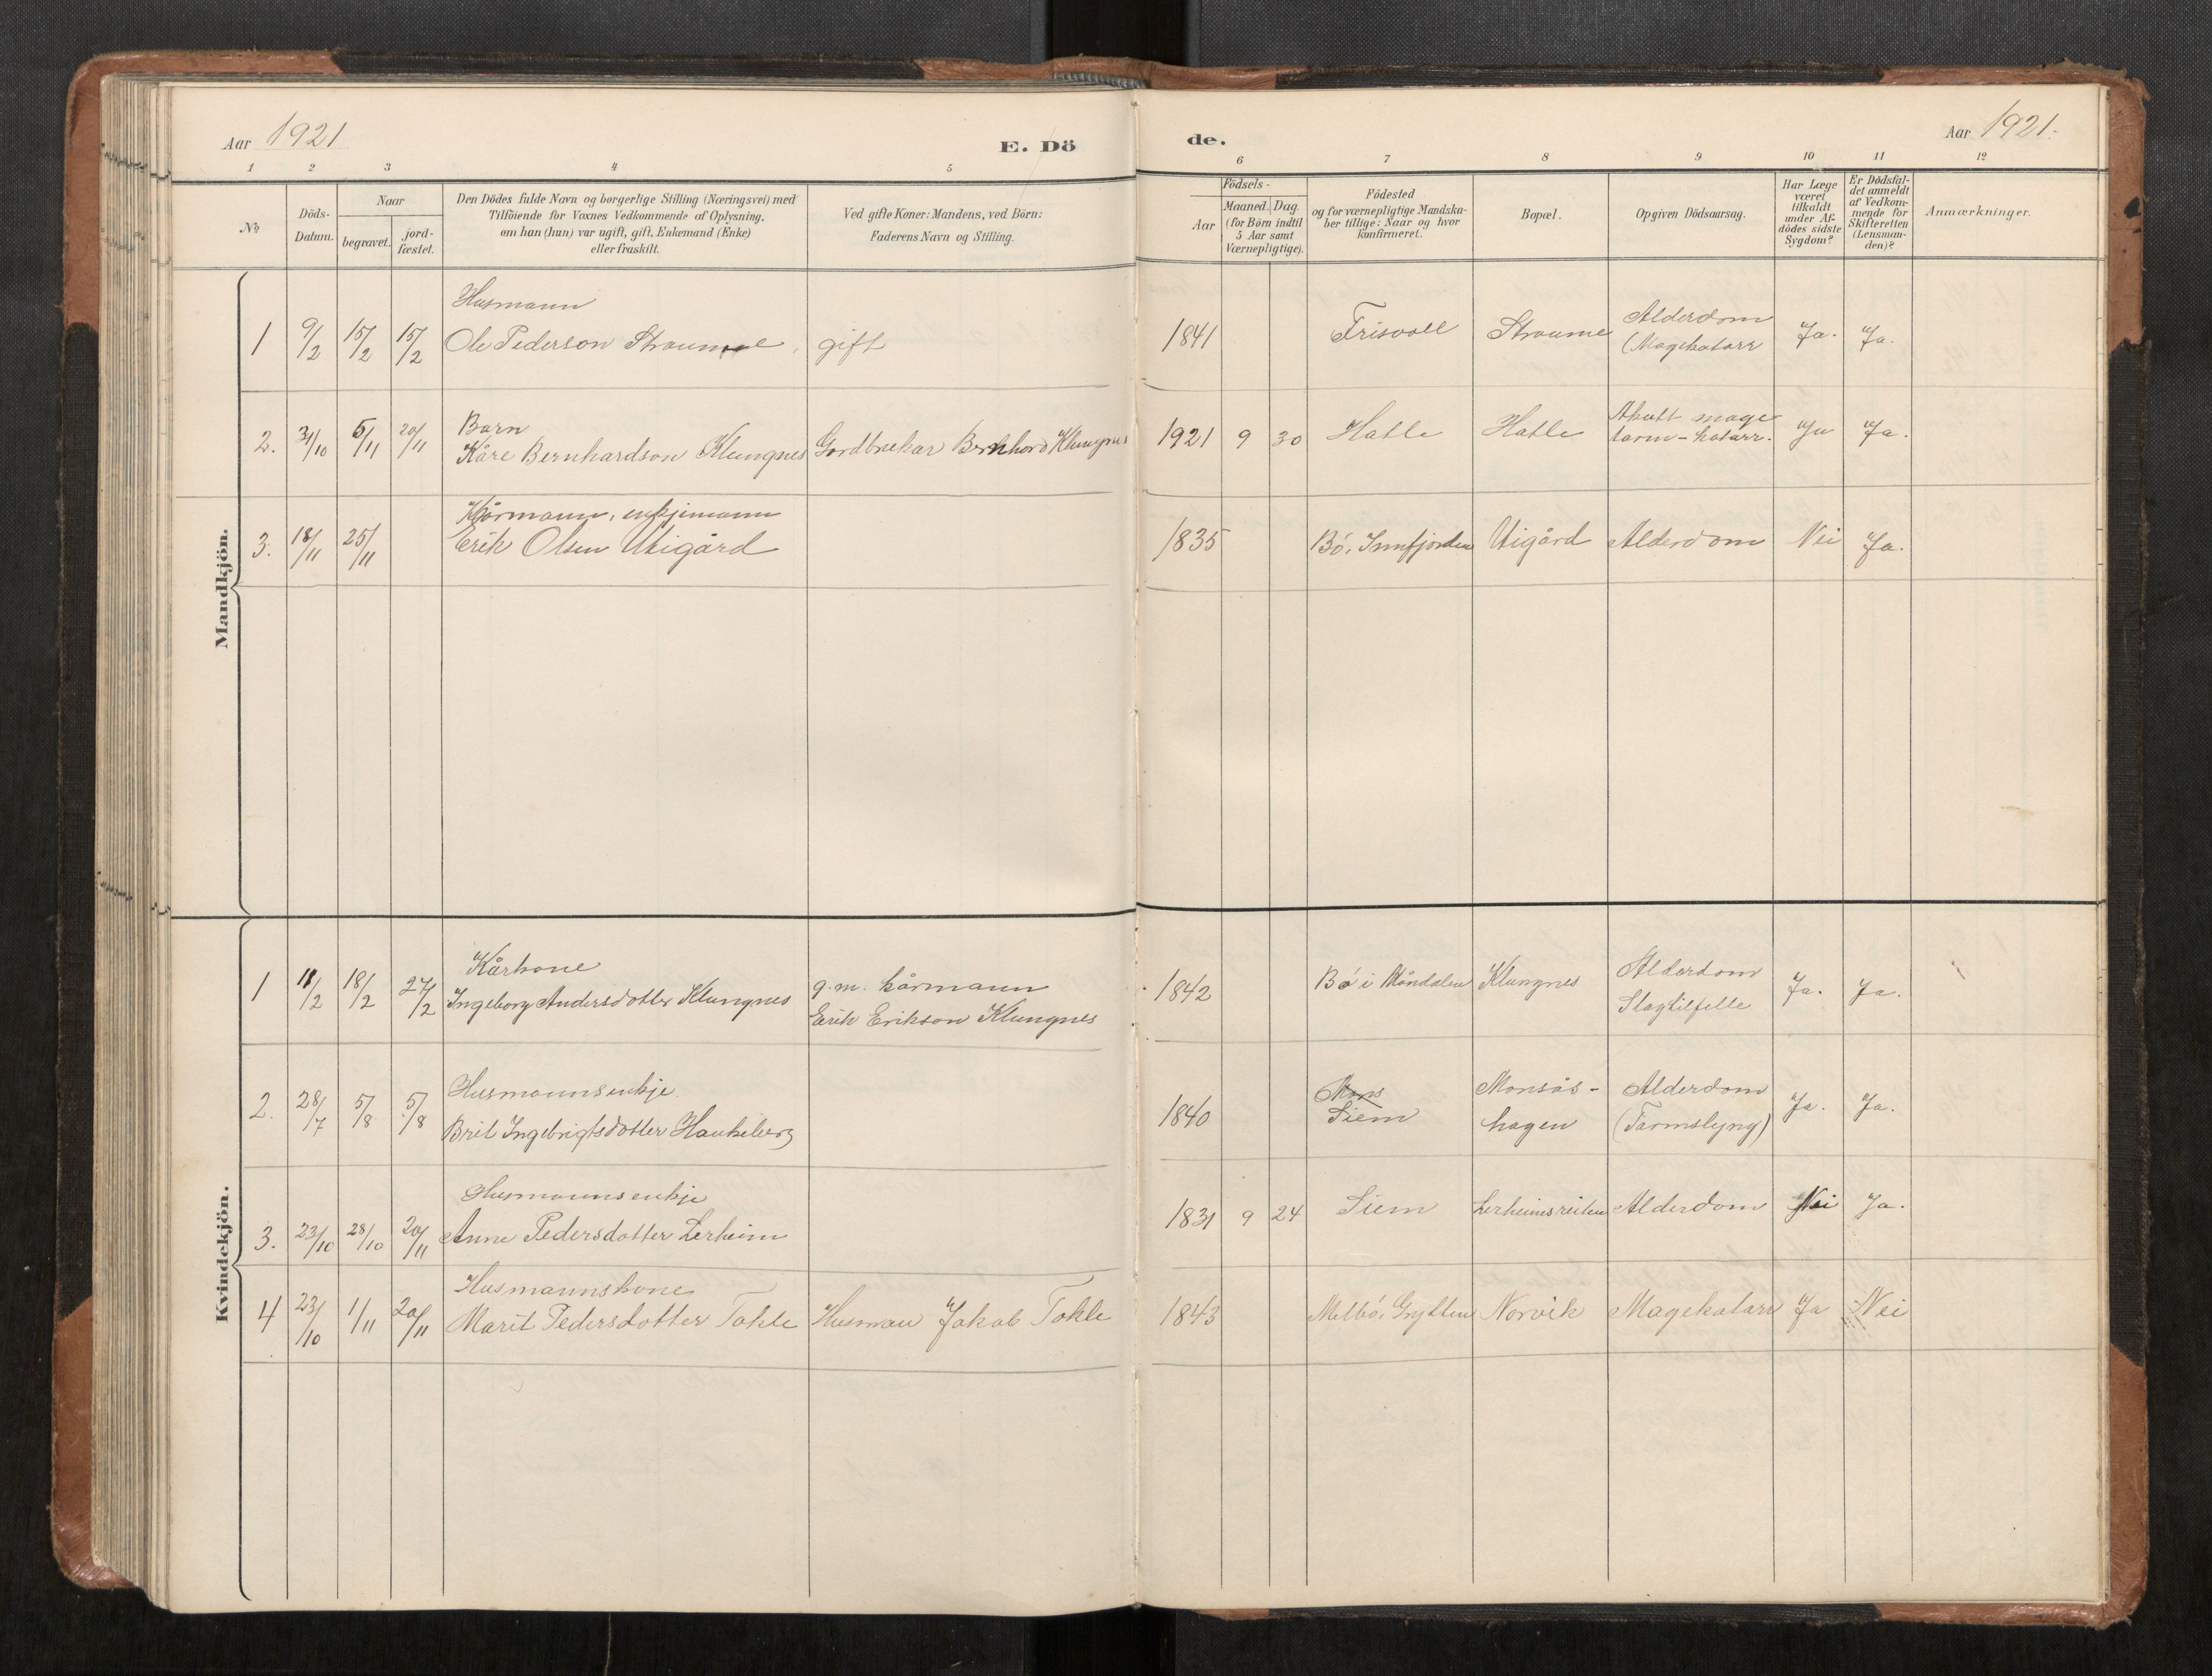 Aar 1921
E. Dö
de.
Aar 1921.
1 2 3 4 5 6 7 8 9 10 11 12
No
Döds-
Datum.
Naar
begravet.
jord-
fæstet.
Den Dödes fulde Navn og borgerlige Stilling (Næringsvei) med
Tilföiende for Voxnes Vedkommende af Oplysning,
om han (hun) var ugift, gift, Enkemand (Enke)
eller fraskilt.
Ved gifte Koner: Mandens, ved Börn:
Faderens Navn og Stilling.
Födsels-
Aar
Maaned. Dag.
(for Börn indtil
5 Aar samt
Værnepligtige).
Födested
og for værnepligtige Mandska-
ber tillige: Naar og hvor
konfirmeret.
Bopæl.
Opgiven Dödsaarsag.
Har Læge
været
tilkaldt
under Af-
dödes sidste
Sygdom?
Er Dödsfal-
det anmeldt
af Vedkom-
mende for
Skifteretten
(Lensman-
den)?
Anmærkninger.
Mandkjön.
Husmann
1 9/2 15/2 15/2 Ole Pederson Straume, gift 1841 Frisvoll Straume Alderdom
(Magekatarr Ja. Ja.
Barn
2. 31/10 5/11 20/11 Kåre Bernhardson Klungnes Gardbrukar Bernhard Klungnes 1921 9 30 Hatle Hatle Akutt mage
tarm-katarr. Ja Ja.
Kårmann, enkjemann
3. 18/11 25/11 Erik Olsen Utigård 1835 Bö, Innfjorden Utigård Alderdom Nei Ja.
Kvindekjön.
Kårkone
1 11/2 18/2 27/2 Ingeborg Andersdotter Klungnes g.m. kårmann
Erik Erikson Klungnes 1842 Bö i Måndalen Klungnes Alderdom
Slagtilfelle Ja. Ja.
Husmannsenkje.
2. 28/7 5/8 5/8 Brit Ingebrigtsdotter Haukeberg 1840 Mons
Siem Monsås-
hagen Alderdom
(Tarmslyng) Ja. Ja.
Husmannsenkje
3. 23/10 28/10 20/11 Anne Pedersdotter Lerheim 1831 9 24 Siem Lerheimsreiten Alderdom Nei Ja.
Husmannskone
4 23/10 1/11 20/11 Marit Pedersdotter Tokle Husman Jakob Tokle 1843 Melbö, Grytten Norvik Magekatarr Ja Nei